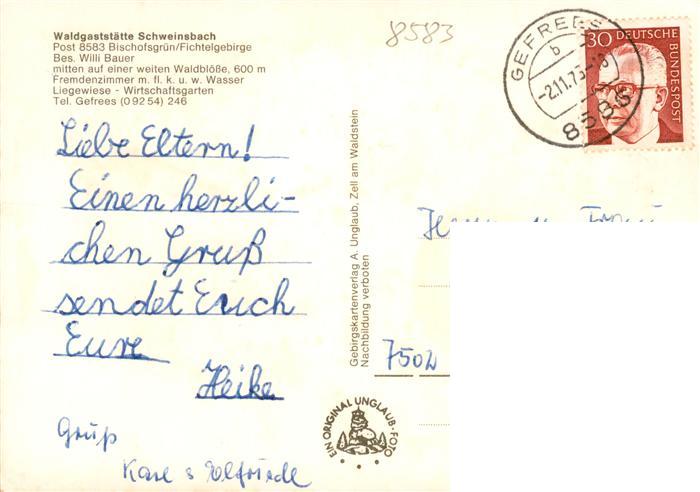 Waldgaststätte Schweinsbach
Post 8583 Bischofsgrün/Fichtelgebirge
Bes. Willi Bauer
mitten auf einer weiten Waldblöße, 600 m
Fremdenzimmer m. fl. k. u. w. Wasser
Liegewiese - Wirtschaftsgarten
Tel. Gefrees (0 92 54) 246
8583
GEFREES
b
-2.11.73-18
8586
30 DEUTSCHE
BUNDESPOST
Liebe Eltern!
Einen herzli-
chen Gruß
sendet Euch
Eure
Heike
Gruß
Karl & Elfriede
Gebirgskartenverlag A. Unglaub, Zell am Waldstein
Nachbildung verboten
EIN ORIGINAL UNGLAUB-FOTO
Herrn u. Frau
7502